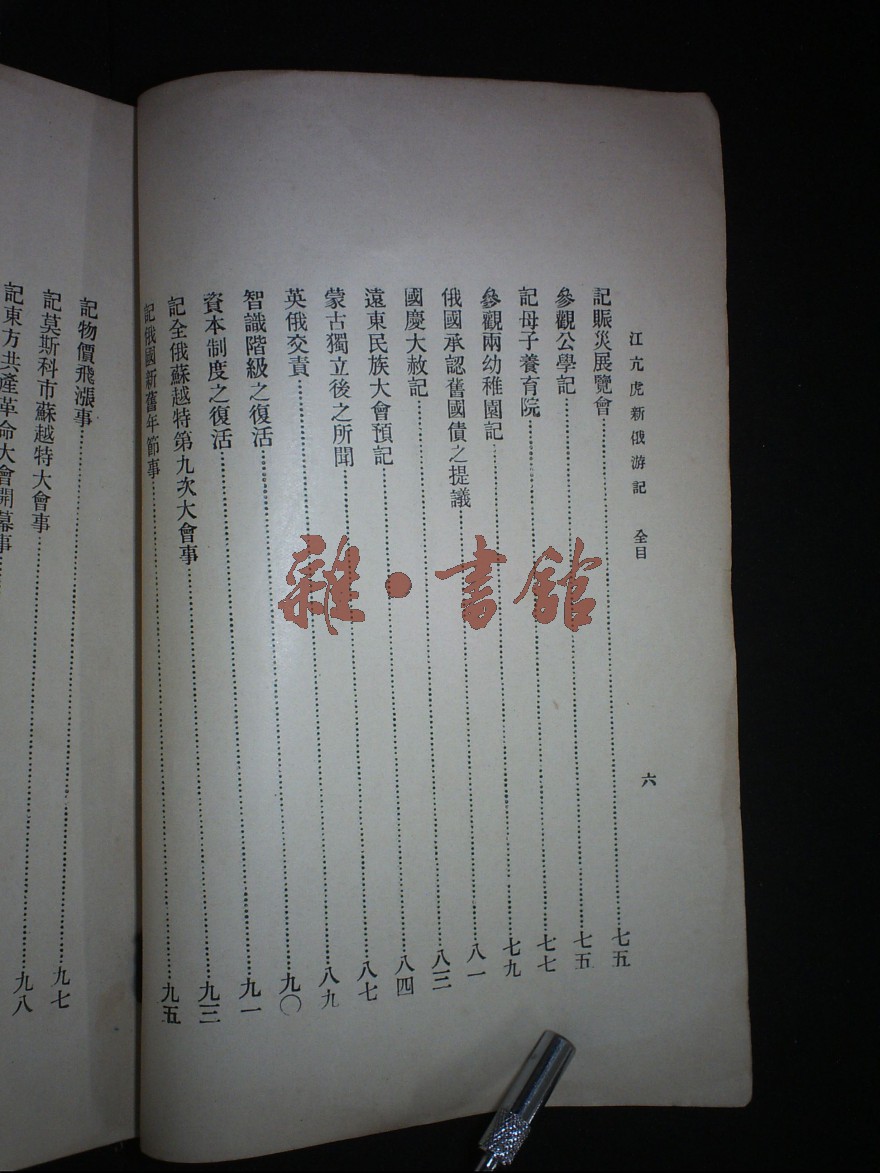 江亢虎新俄游記 全目 六
記賑災展覽會……七五
參觀公學記……七五
記母子養育院……七七
參觀兩幼稚園記……七九
俄國承認舊國債之提議……八一
國慶大赦記……八三
遠東民族大會預記……八四
蒙古獨立後之所聞……八七
英俄交責……八九
智識階級之復活……九〇
資本制度之復活……九一
記全俄蘇越特第九次大會事……九三
記俄國新舊年節事……九五
記物價飛漲事……九七
記莫斯科市蘇越特大會事……九八
記東方共產革命大會開幕事……
雜·書館